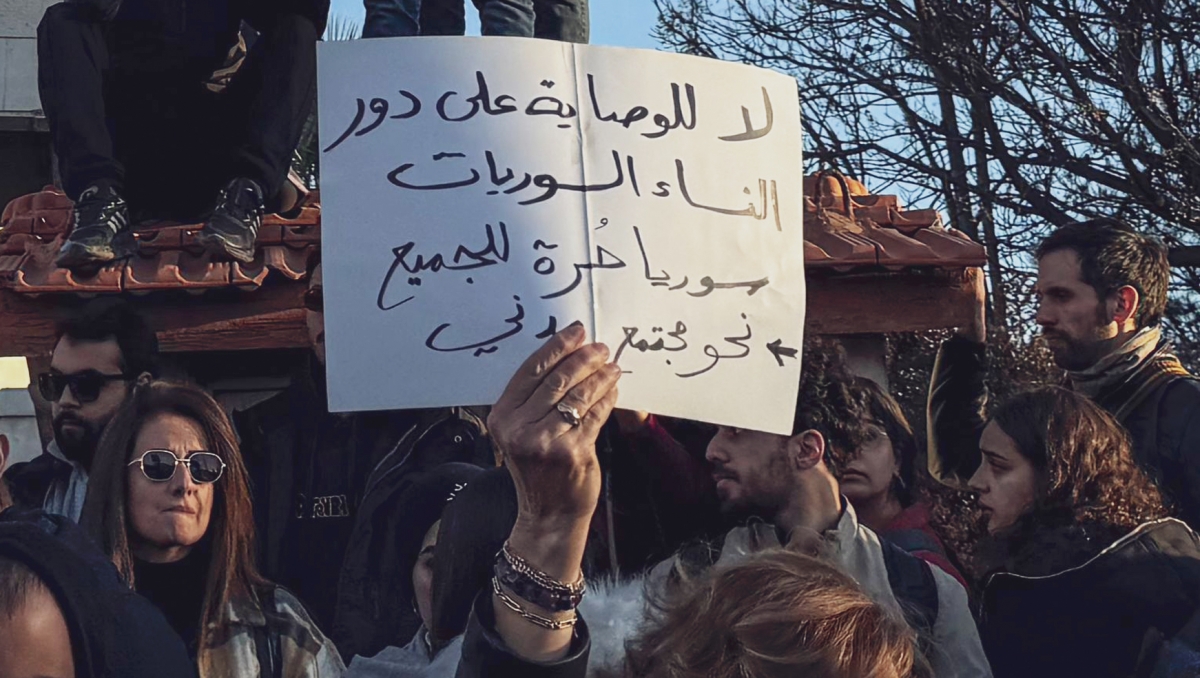 لا للوصاية على دور
النساء السوريات
سوريا حُرة للجميع
← نحو مجتمع مدني